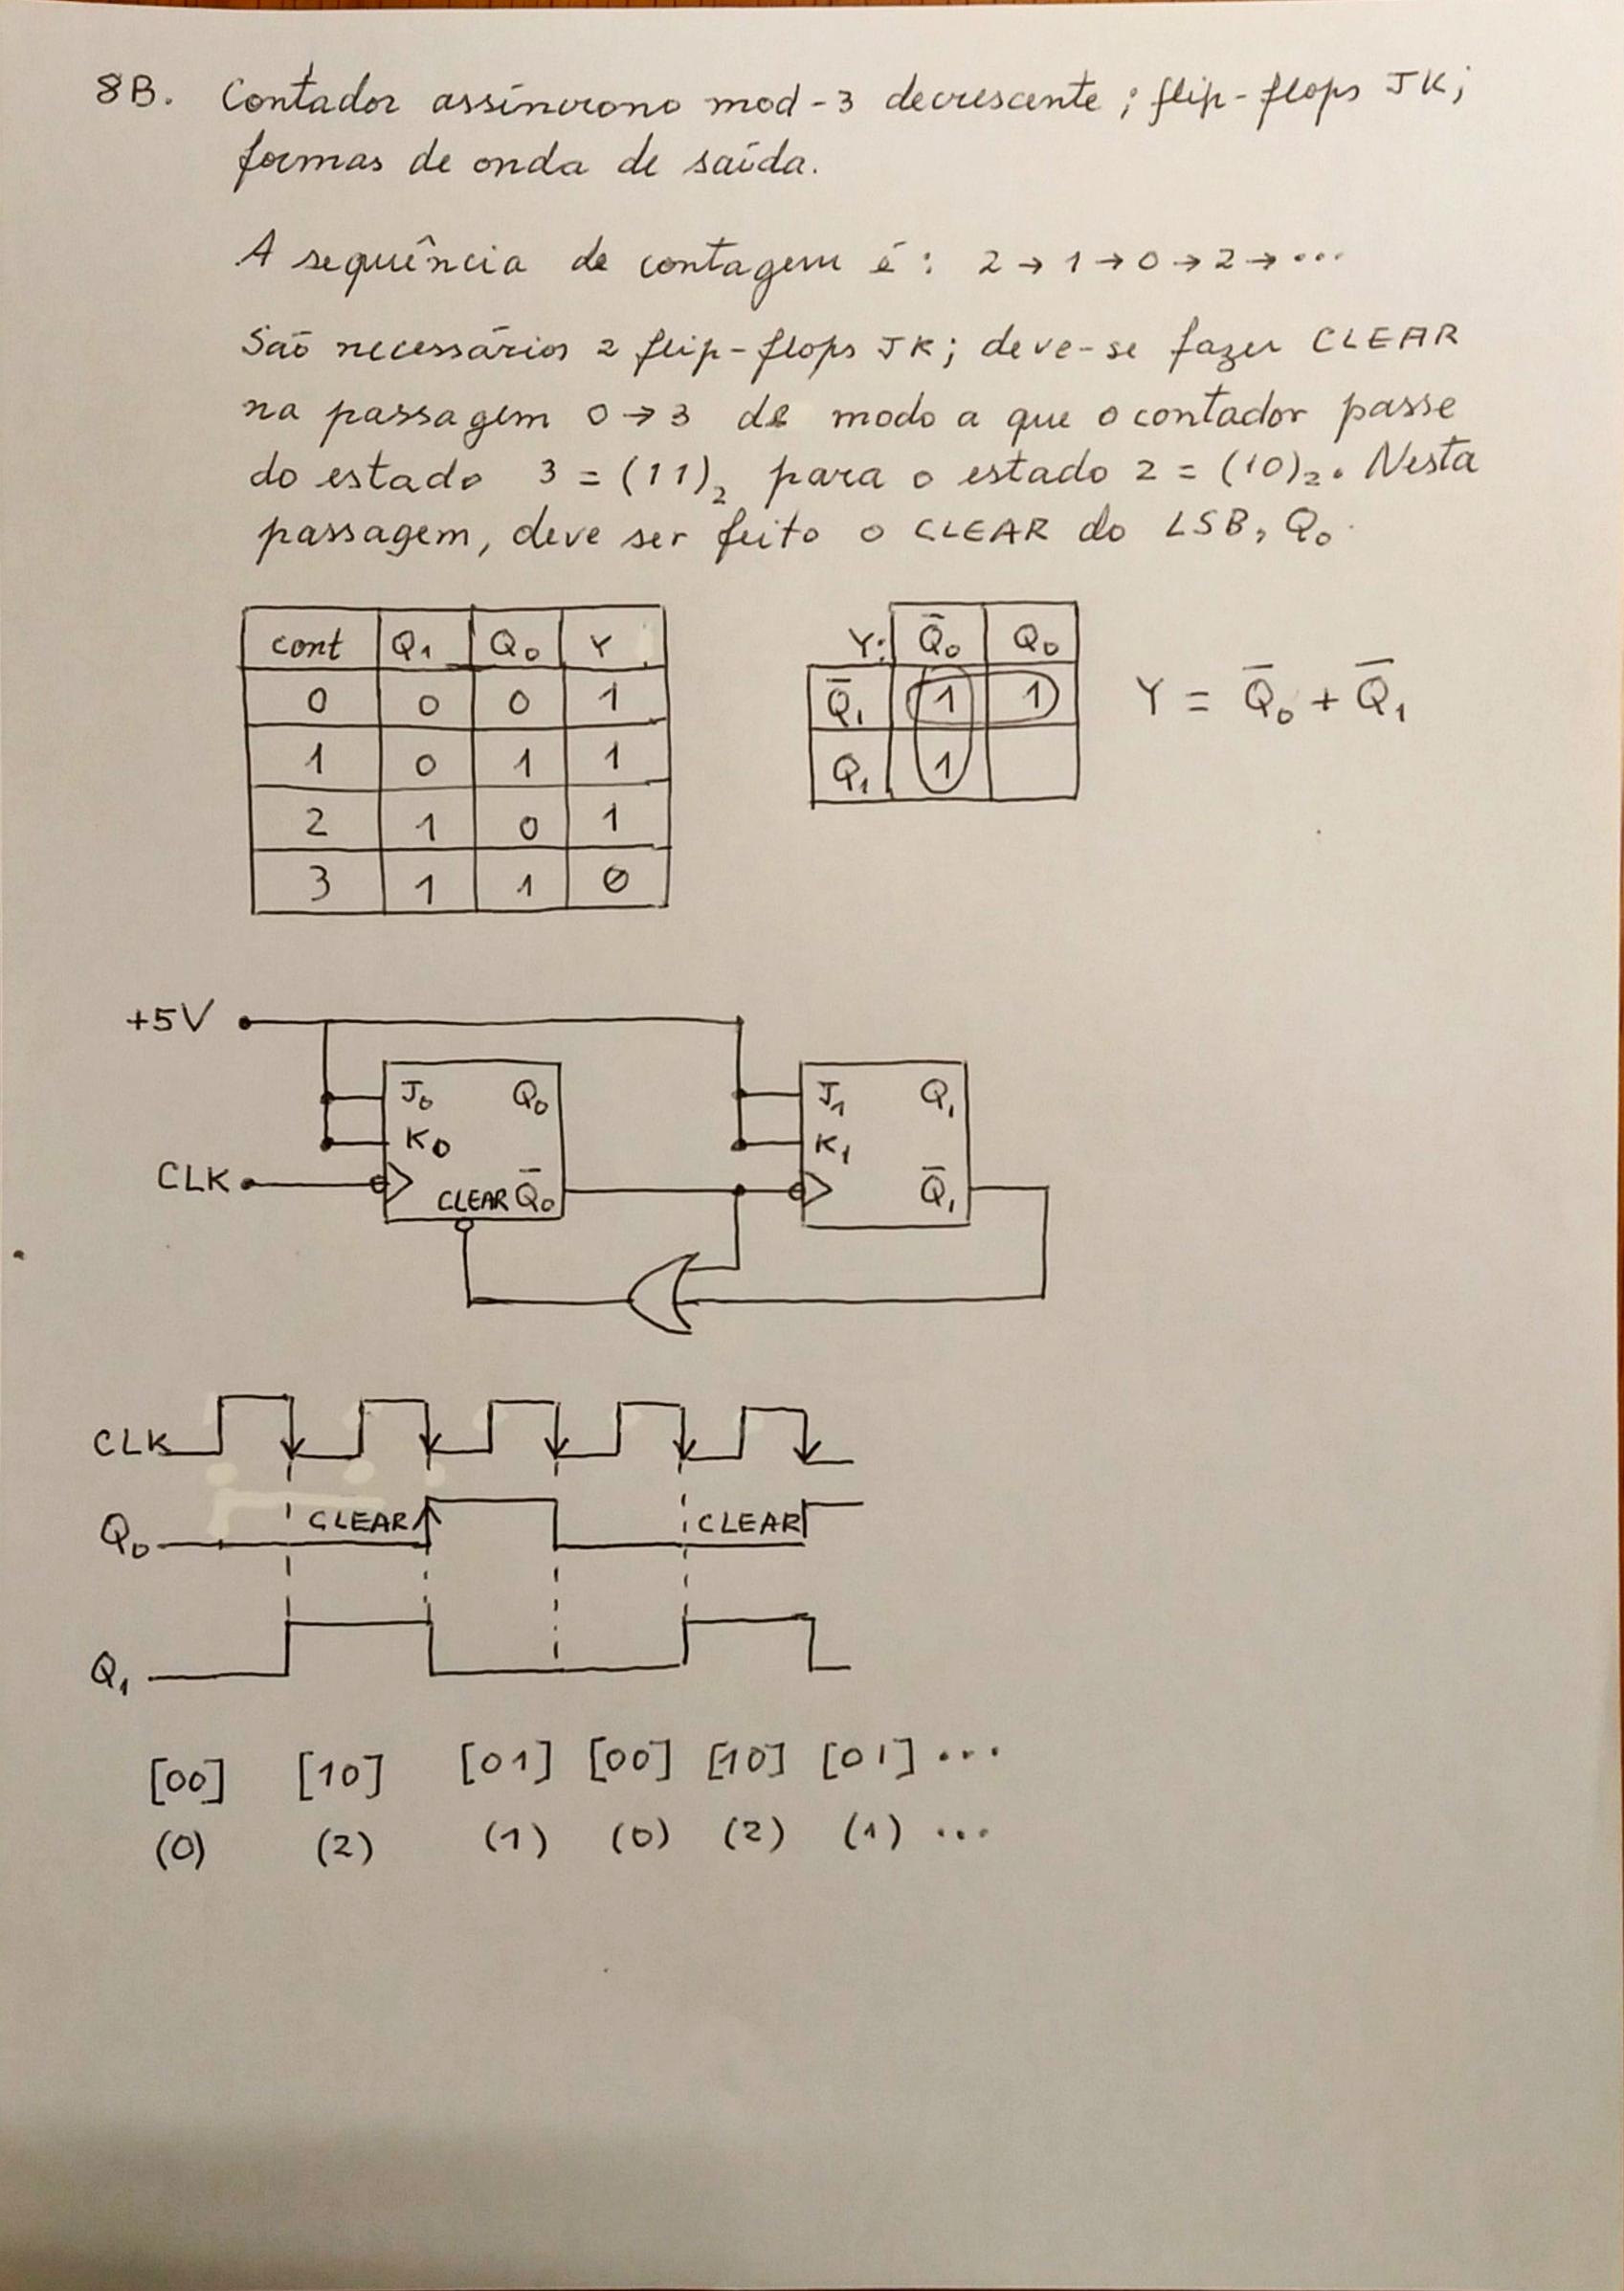 8B. Contador assíncrono mod-3 decrescente; flip-flops JK;
formas de onda de saída.
A sequência de contagem é: 2 → 1 → 0 → 2 → ...
São necessários 2 flip-flops JK; deve-se fazer CLEAR
na passagem 0 → 3 de modo a que o contador passe
do estado 3 = (11)₂ para o estado 2 = (10)₂. Nesta
passagem, deve ser feito o CLEAR do LSB, Q₀.
cont Q₁ Q₀ Y
0 0 0 1
1 0 1 1
2 1 0 1
3 1 1 0
Y: Q̄₀ Q₀
Q̄₁ 1 1
Q₁ 1
Y = Q̄₀ + Q̄₁
+5V
J₀ Q₀ J₁ Q₁
K₀ K₁
CLK CLEAR Q̄₀ Q̄₁
CLK
Q₀ CLEAR CLEAR
Q₁
[00] [10] [01] [00] [10] [01] ...
(0) (2) (1) (0) (2) (1) ...